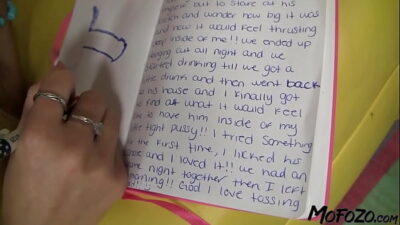 but to stare at his
and wonder how big it was
and how it would feel thrusting
deep inside of me!! we ended up
hanging out all night and we
started drinking till we got a
drunk and then went back
to his house and I finally got
to find out what it would feel
to have him inside of my
tight pussy!! I tried something
the first time, I licked his
and I loved it!! we had an
night together then I left
morning!! God I love tossing
MOFOZO.com